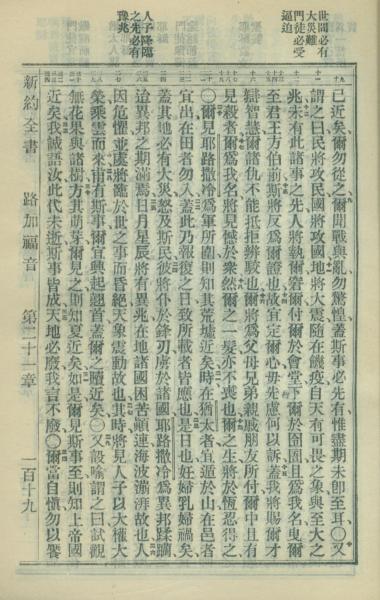 世間必有
大災難
門徒必受
逼迫
人子降臨
之先必有
豫兆
已近矣爾勿從之爾聞戰與亂勿驚惶蓋斯事必先有惟盡期未卽至耳〇又
謂之曰民將攻民國將攻國地將大震隨在饑疫自天有可畏之象與至大之
兆未有此諸事之先人將執爾窘爾付爾於會堂下爾於囹圄且爲我名曳爾
至君王方伯前斯將反爲爾證也故宜定爾心毋先慮何以訴蓋我將賜爾才
辯智慧爾諸仇不能抵拒辨駁也爾將爲父母兄弟親戚朋友所付爾中且有
見殺者爾爲我名將見憾於衆然爾之一髮亦不喪也爾之生將於恆忍得之
〇爾見耶路撒冷爲軍所圍則知其荒墟近矣時在猶太者宜遁於山在邑者
宜出在田者勿入蓋此乃報復之日致所載者皆應也是日也妊婦乳婦禍矣
蓋其地必有大災怒及斯民彼將仆於鋒刃虜於諸國耶路撒冷爲異邦蹂躪
治異邦之期滿焉日月星辰將有異兆在地諸國困苦顚連海波漰湃故也人
因危懼並慮將臨於世之事而昏絕天象震動故也其時將見人子以大權大
榮乘雲而來甫有斯事爾宜興起翹首蓋爾之贖近矣〇又設喩謂之曰試觀
無花果與諸樹方其萌芽爾見之則知夏近矣如是爾見斯事至則知上帝國
近矣我誠語汝此代未逝斯事皆成天地必廢我言不廢〇爾當自愼勿以饕
新約全書
路加福音
第二十一章
一百十九